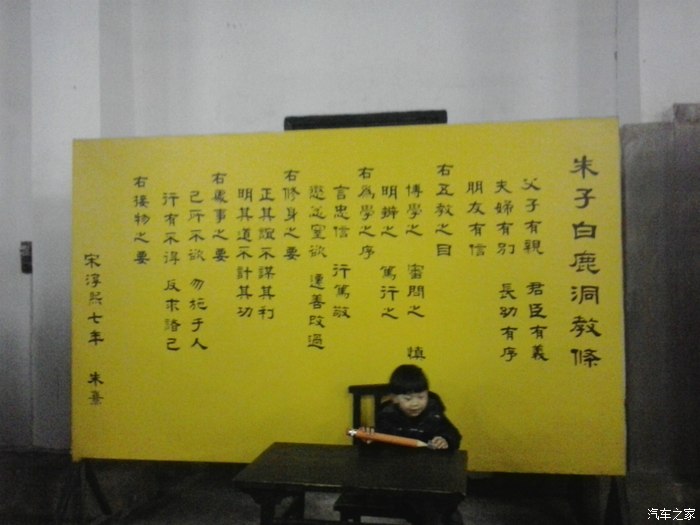 朱子白鹿洞教條
父子有親 君臣有義
夫婦有別 長幼有序
朋友有信
右五教之目
博學之 審問之 慎
明辨之 篤行之
右爲學之序
言忠信 行篤敬
懲忿窒欲 遷善改過
右修身之要
正其誼不謀其利
明其道不計其功
右處事之要
己所不欲 勿施于人
行有不得 反求諸己
右接物之要
宋淳熙七年 朱熹
汽车之家